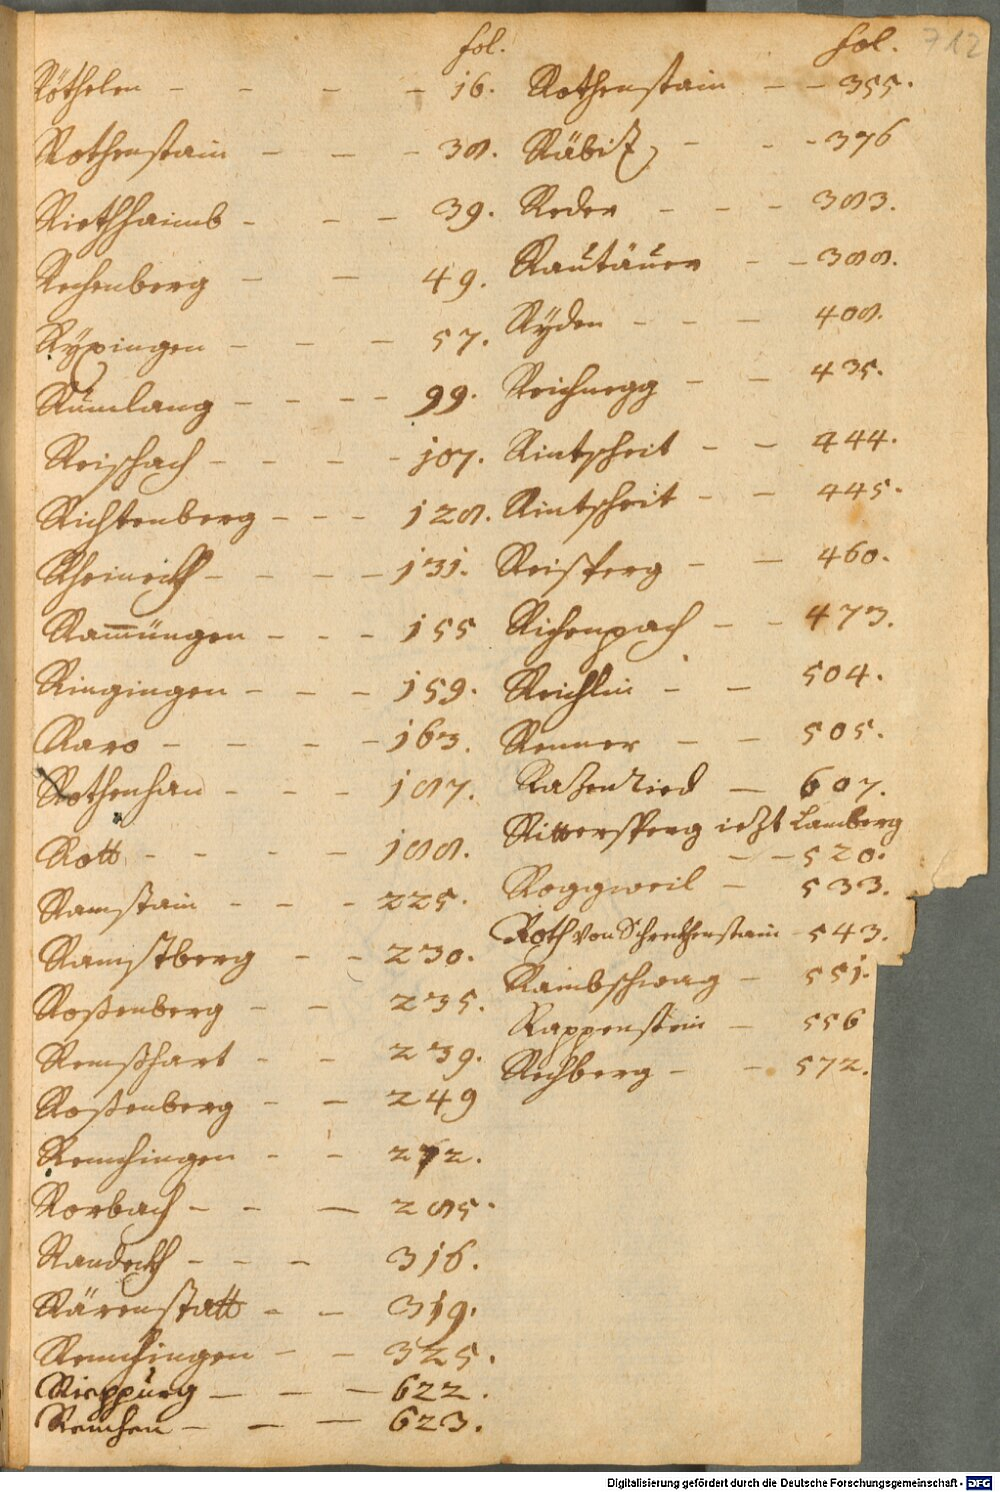 fol.
Röthelen - - - - 16.
Rothenstain - - - 38.
Riethhaimb - - - 39.
Rechenberg - - 49.
Rÿxingen - - - 57.
Rümlang - - - - 99.
Reischach - - - - 107.
Richtenberg - - - 128.
Rheineckh - - - - 131.
Ram̅üngen - - - 155
Ringingen - - - 159.
Raro - - - - 163.
Rothenhan - - - 187.
Rott - - - - 188.
Ramstain - - - 225.
Ramstberg - - 230.
Roßenberg - - 235.
Remßhart - - 239.
Roßenberg - - 249
Remchingen - - 272.
Rorbach - - - 285.
Randeckh - - - 316.
Rärenstatt - - 319.
Remchingen - - 325.
Rieppurg - - - 622.
Remchen - - - 623.
fol. 712
Rothenstain - - 355.
Räbiz - - - 376
Reder - - - 383.
Rautäuer - - 388.
Rÿden - - - 408.
Reichnegg - - 435.
Rintscheit - - 444.
Rintscheit - - 445.
Reisperg - - 460.
Richenpach - - 473.
Reichlin - - 504.
Renner - - 505.
Razenried - 607.
Rittersperg iezt Lamberg
- - 520.
Roggweil - 533.
Roth von Schreckhenstain - 543.
Rambschwag - 551.
Rappenstein - 556
Rechberg - - 572.
Digitalisierung gefördert durch die Deutsche Forschungsgemeinschaft - DFG